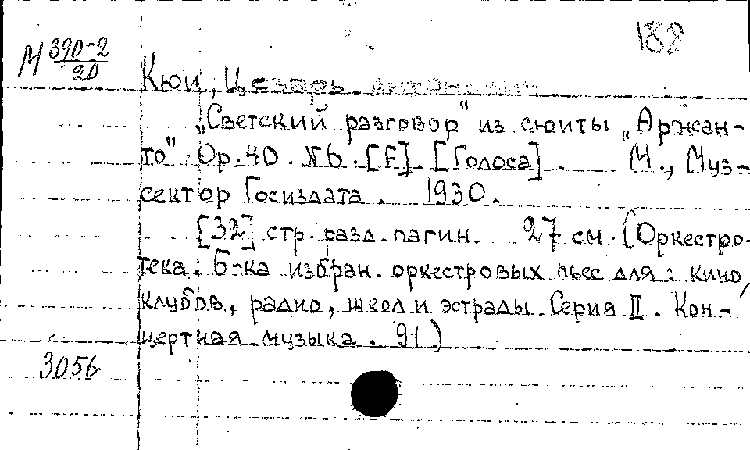 188
М 390-2
90
Кюи, Цезарь Антонович
„Светский разговор" из сюиты „Аржан-
то". Ор. 40. №6. [F]. [Голоса]. М., Муз-
сектор Госиздата. 1930.
[32] стр. разд. пагин. 27 см. (Оркестро-
тека. Б-ка избран. оркестровых пьес для: кино,
клубов, радио, школ и эстрады. Серия II. Кон-
цертная музыка. 91)
3056